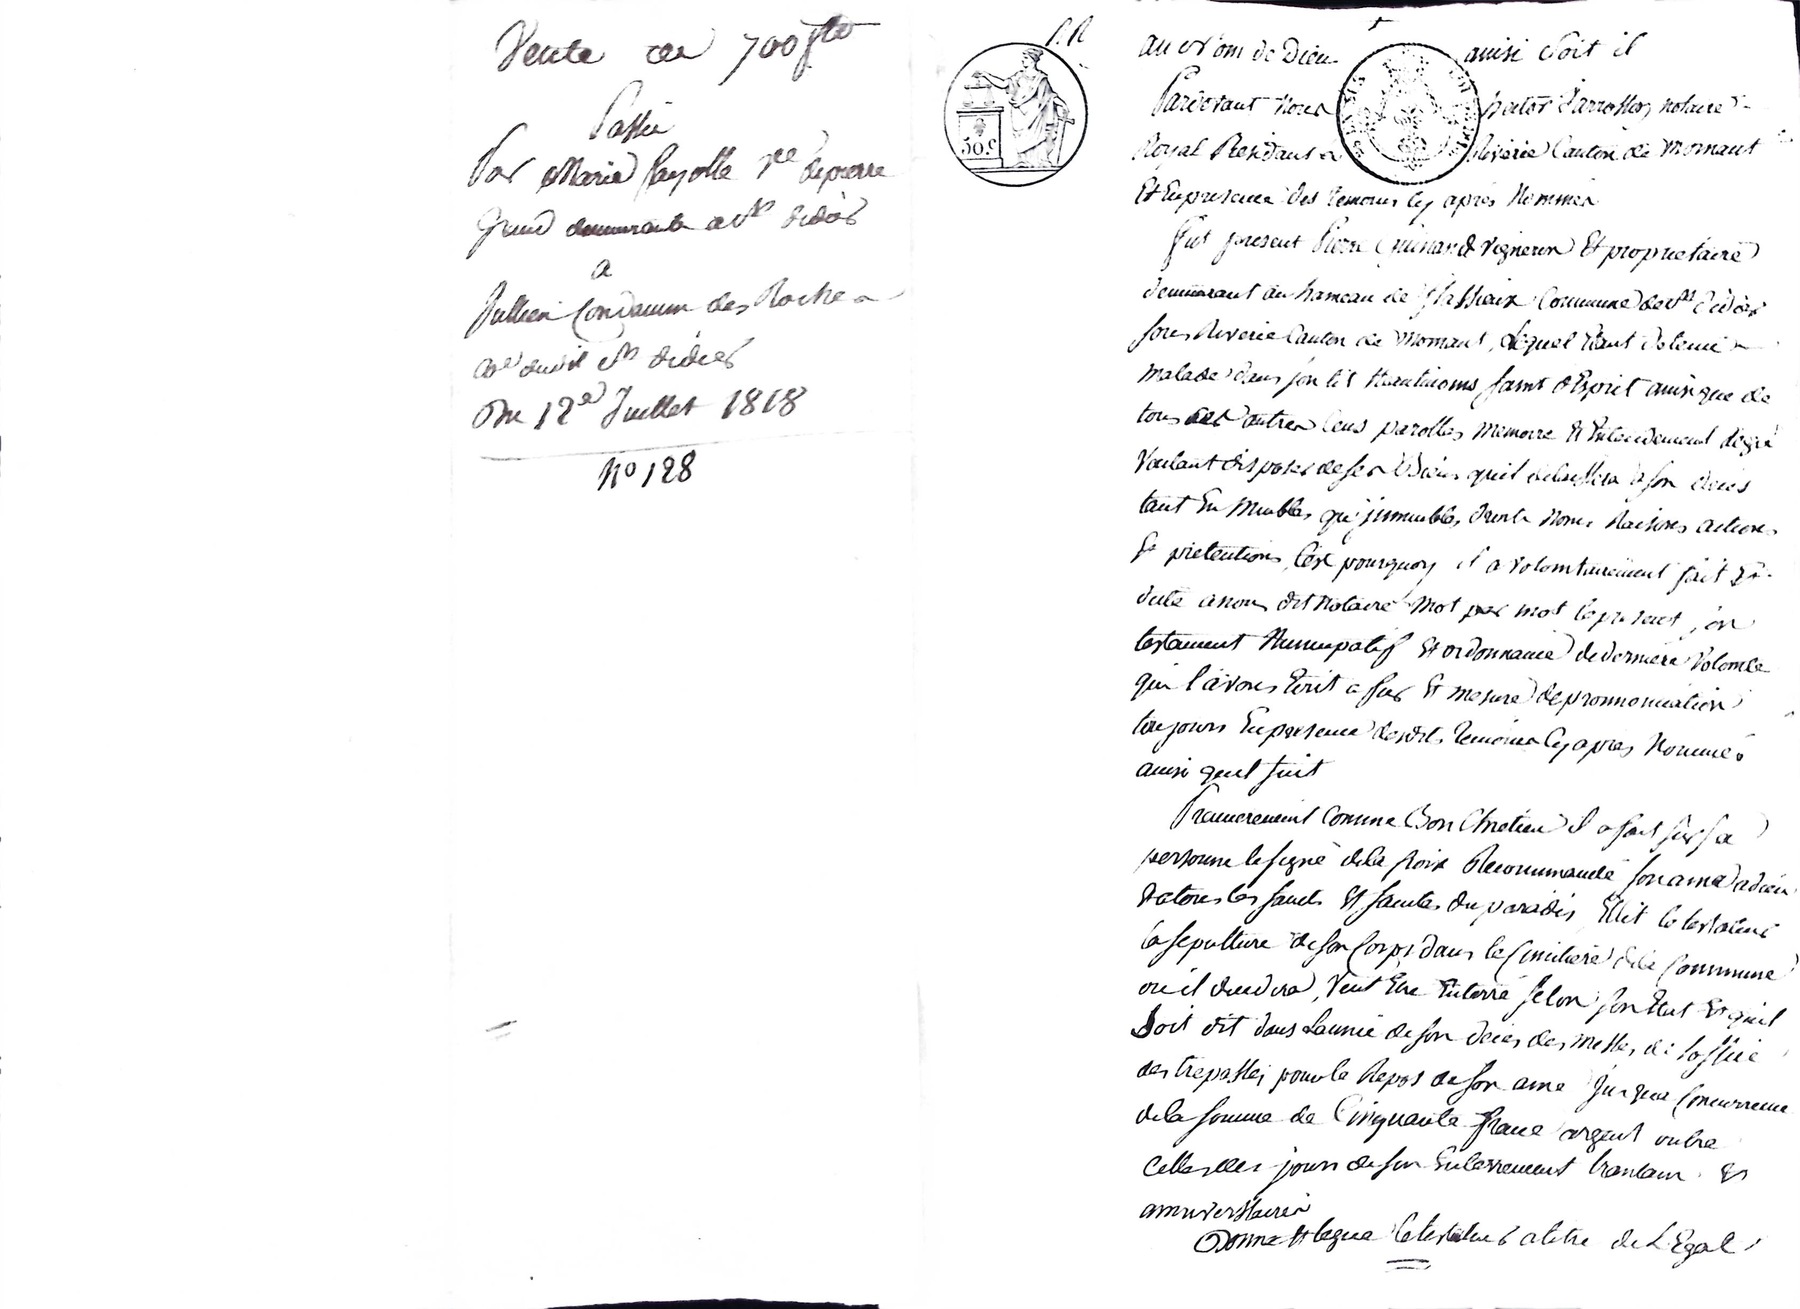 Vente de 700 fr
Passée
Par Marie fayolle Ve de pierre
Grand demeurante a St didier
a
Jullien Condamin des Roches
Cne dudit St didier
Du 12e Juillet 1818
No 128
50 c
au Nom de Dieu ainsi Soit il
Pardevant Nous notaire
Royal Residant a Riverie Canton de Mornant
Et En presence des temoins Cy après Nommés
fut present Pierre Guinand Vigneron Et proprietaire
demeurant au hameau de Commune de St didier
sous Riverie Canton de Mornant, lequel Etant detenu
malade dans son lit Neantmoins saint d'Esprit ainsi que de
tous ses autres sens parolles memoire Et Entendement
Voulant disposer de ses Biens qu'il delaissera a son décès
tant En Meubles qu'jmmeubles, droits Noms Raisons actions
Et pretentions, C'est pourquoy il a volontairement fait Et
dicté a nous dit Notaire Mot par mot le present son
testament Nuncupatif Et ordonnance de derniere Volonté
que l'avons Ecrit a fur Et mesure de pronnonciation
toujours En presence desdits temoins Cy après Nommés
ainsi quil suit
Premierement Comme Bon Chretien il a fait sur sa
personne le signe de la Croix Recommandé son ame a dieu
Et a tous les saints Et saintes du paradis, Elit le testateur
la sepulture de son Corps dans le Cimetiere de la Commune
ou il decedera, Veut Etre Enterré selon son Etat Et quil
Soit dit dans Lannée de son décès des messes de Loffice
des trepassés pour le Repos de son ame jusqua Concurrence
de la somme de Cinquante francs argent outre
Celles des jours de son Enterrement trantain Et
anniversaire
Donne Et legue le testateur a titre de L'Egat